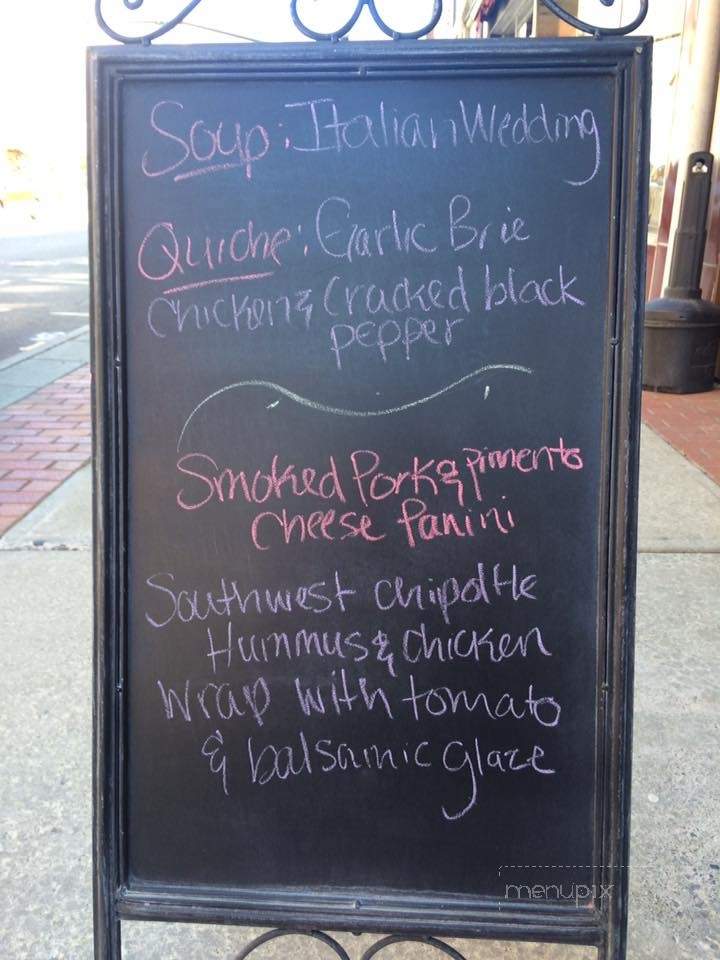 Soup: Italian Wedding
Quiche: Garlic Brie
Chicken & Cracked black
pepper
Smoked Pork & pimento
Cheese Panini
Southwest chipotle
Hummus & chicken
Wrap with tomato
& balsamic glaze
menupix